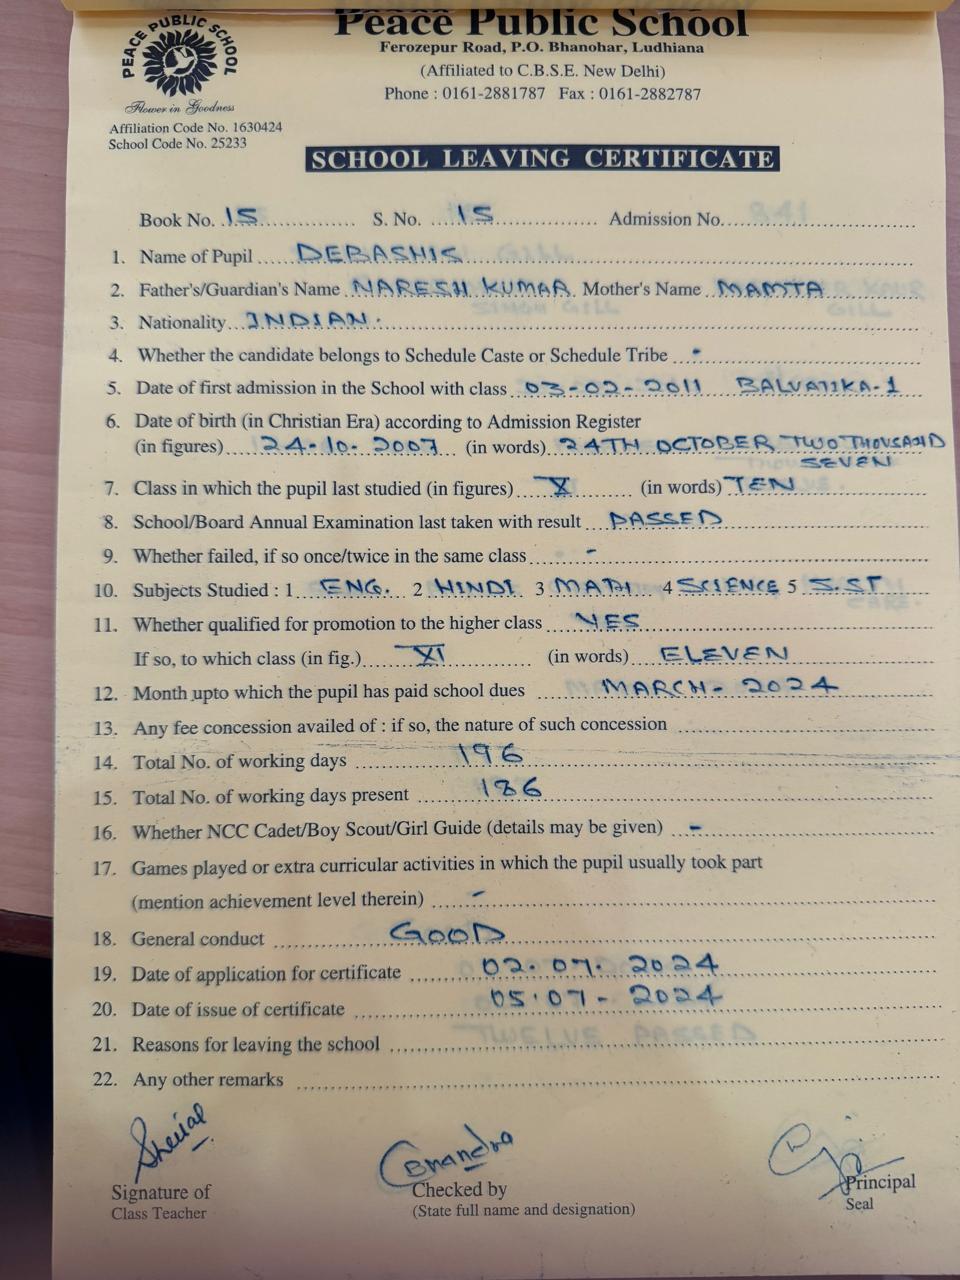 Peace Public School
Ferozepur Road, P.O. Bhanohar, Ludhiana
(Affiliated to C.B.S.E. New Delhi)
Phone : 0161-2881787 Fax : 0161-2882787
PEACE PUBLIC SCHOOL
Flower in Goodness
Affiliation Code No. 1630424
School Code No. 25233
SCHOOL LEAVING CERTIFICATE
Book No. 15 S. No. 15 Admission No. 841
1. Name of Pupil DEBASHIS
2. Father's/Guardian's Name NARESH KUMAR Mother's Name MAMTA
3. Nationality INDIAN.
4. Whether the candidate belongs to Schedule Caste or Schedule Tribe -
5. Date of first admission in the School with class 03-02-2011 BALVATIKA-1
6. Date of birth (in Christian Era) according to Admission Register
(in figures) 24-10-2007 (in words) 24TH OCTOBER TWO THOUSAND
SEVEN
7. Class in which the pupil last studied (in figures) X (in words) TEN
8. School/Board Annual Examination last taken with result PASSED
9. Whether failed, if so once/twice in the same class -
10. Subjects Studied : 1 ENG. 2 HINDI 3 MATH 4 SCIENCE 5 S.ST
11. Whether qualified for promotion to the higher class YES
If so, to which class (in fig.) XI (in words) ELEVEN
12. Month upto which the pupil has paid school dues MARCH- 2024
13. Any fee concession availed of : if so, the nature of such concession
14. Total No. of working days 196
15. Total No. of working days present 186
16. Whether NCC Cadet/Boy Scout/Girl Guide (details may be given) -
17. Games played or extra curricular activities in which the pupil usually took part
(mention achievement level therein) -
18. General conduct GOOD
19. Date of application for certificate 02.07.2024
20. Date of issue of certificate 05.07-2024
21. Reasons for leaving the school TWELVE PASSED
22. Any other remarks
Signature of
Class Teacher
Checked by
(State full name and designation)
Principal
Seal